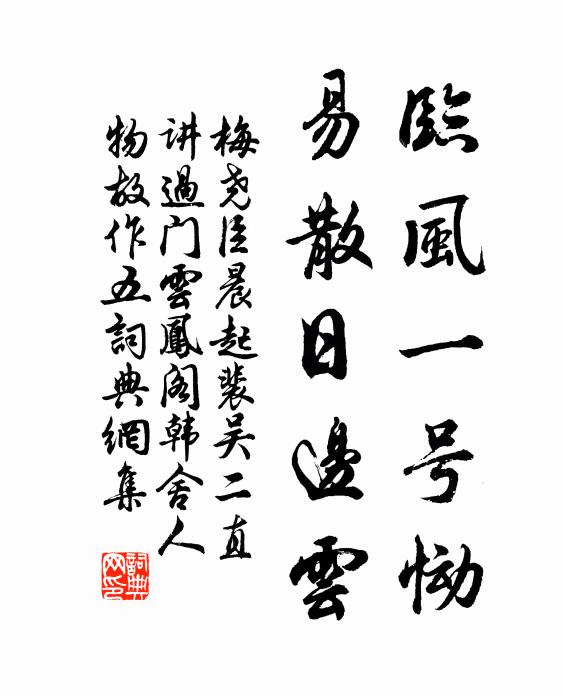 臨風一号慟
易散日邊雲
梅尧臣晨起裴吴二直
讲過门雲鳳阁韩舍人
物故作五詞典網集
詞典网印